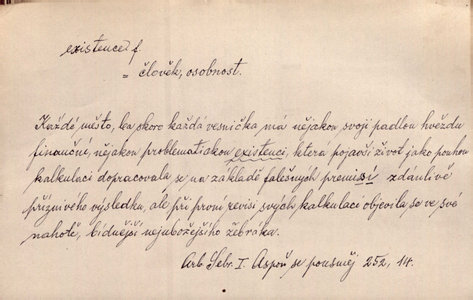 existence f.
= člověk, osobnost.
Každé město, ba skoro každá vesnička má nějakou svoji padlou hvězdu
finanční, nějakou problematickou existenci, která pojavši život jako pouhou
kalkulaci dopracovala se na základě falešných premisí zdánlivě
příznivého výsledku, ale při první revisi svých kalkulací objevila se ve své
nahotě, bídnější nejubožejšího žebráka.
Arb. Sebr. I. Aspoň se pousměj 252, 14.